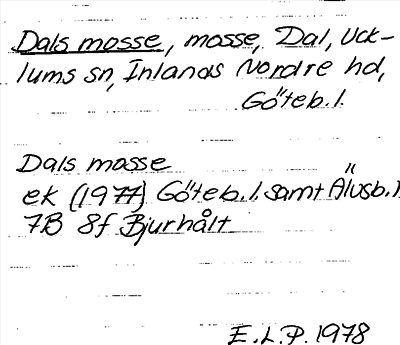 Dals mosse, mosse, Dal, Uck-
lums sn, Inlands Nordre hd,
Göteb. l.
Dals mosse
ek (1977) Göteb. l. samt Älvsb. l.
7B 8f Bjurhålt
E.L.P. 1978